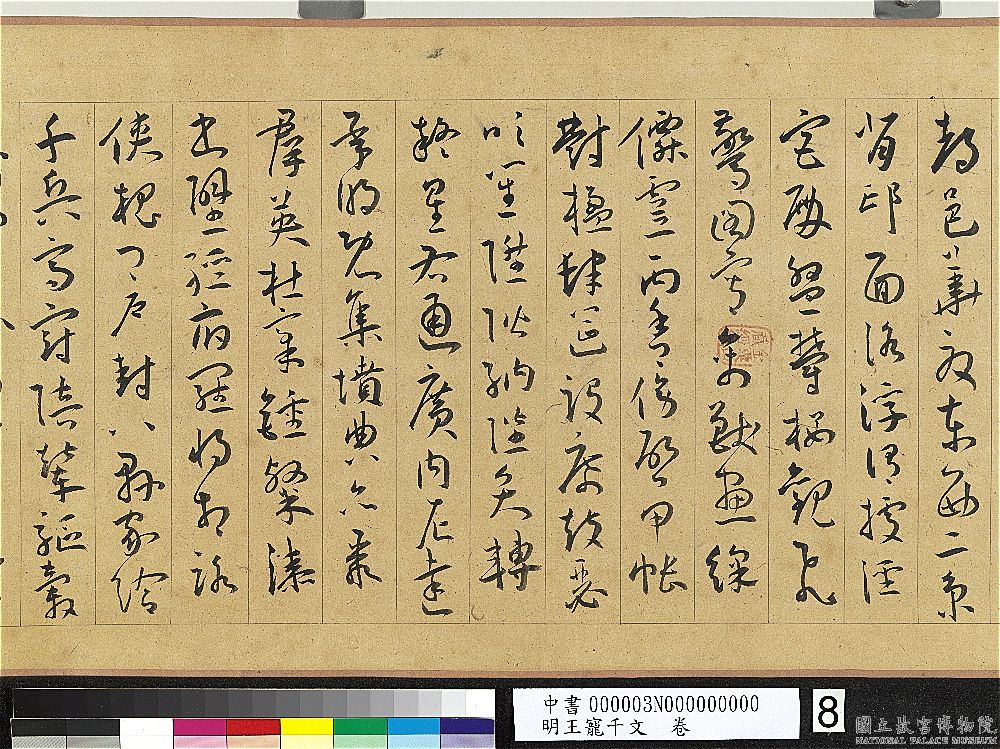 都邑華夏東西二京
背邙面洛浮渭據涇
宮殿盤鬱樓觀飛
驚圖寫禽獸畫綵
僊靈丙舍傍啟甲帳
對楹肆筵設席鼓瑟
吹笙陞階納陛弁轉
疑星右通廣內左達
承明既集墳典亦聚
群英杜稾鍾隸漆
書壁經府羅將相路
俠槐卿戶封八縣家給
千兵高冠陪輦驅轂
中書 000003N000000000
明王寵千文 卷
8
國立故宮博物院
NATIONAL PALACE MUSEUM